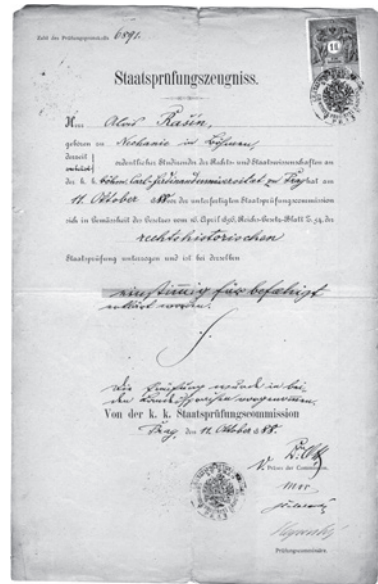 Zahl des Prüfungsprotokolls 6891.
1 fl
Staatsprüfungszeugniss.
Herr Alois Rašín,
geboren zu Nechanic in Böhmen,
derzeit ordentlicher Studierender der Rechts- und Staatswissenschaften an
der k. k. böhm. Carl-Ferdinandsuniversität zu Prag hat am
11. Oktober 1888 vor der unterfertigten Staatsprüfungscommission
sich in Gemässheit des Gesetzes vom 16. April 1856, Reichs-Gesetz-Blatt Z. 54, der
rechtshistorischen
Staatsprüfung unterzogen und ist bei derselben
einstimmig für befähigt
erklärt worden.
Die Prüfung wurde in bei
den Landessprachen vorgenommen.
Von der k. k. Staatsprüfungscommission
Prag, den 11. Oktober 1888.
Präses der Commission.
Prüfungscommissäre.